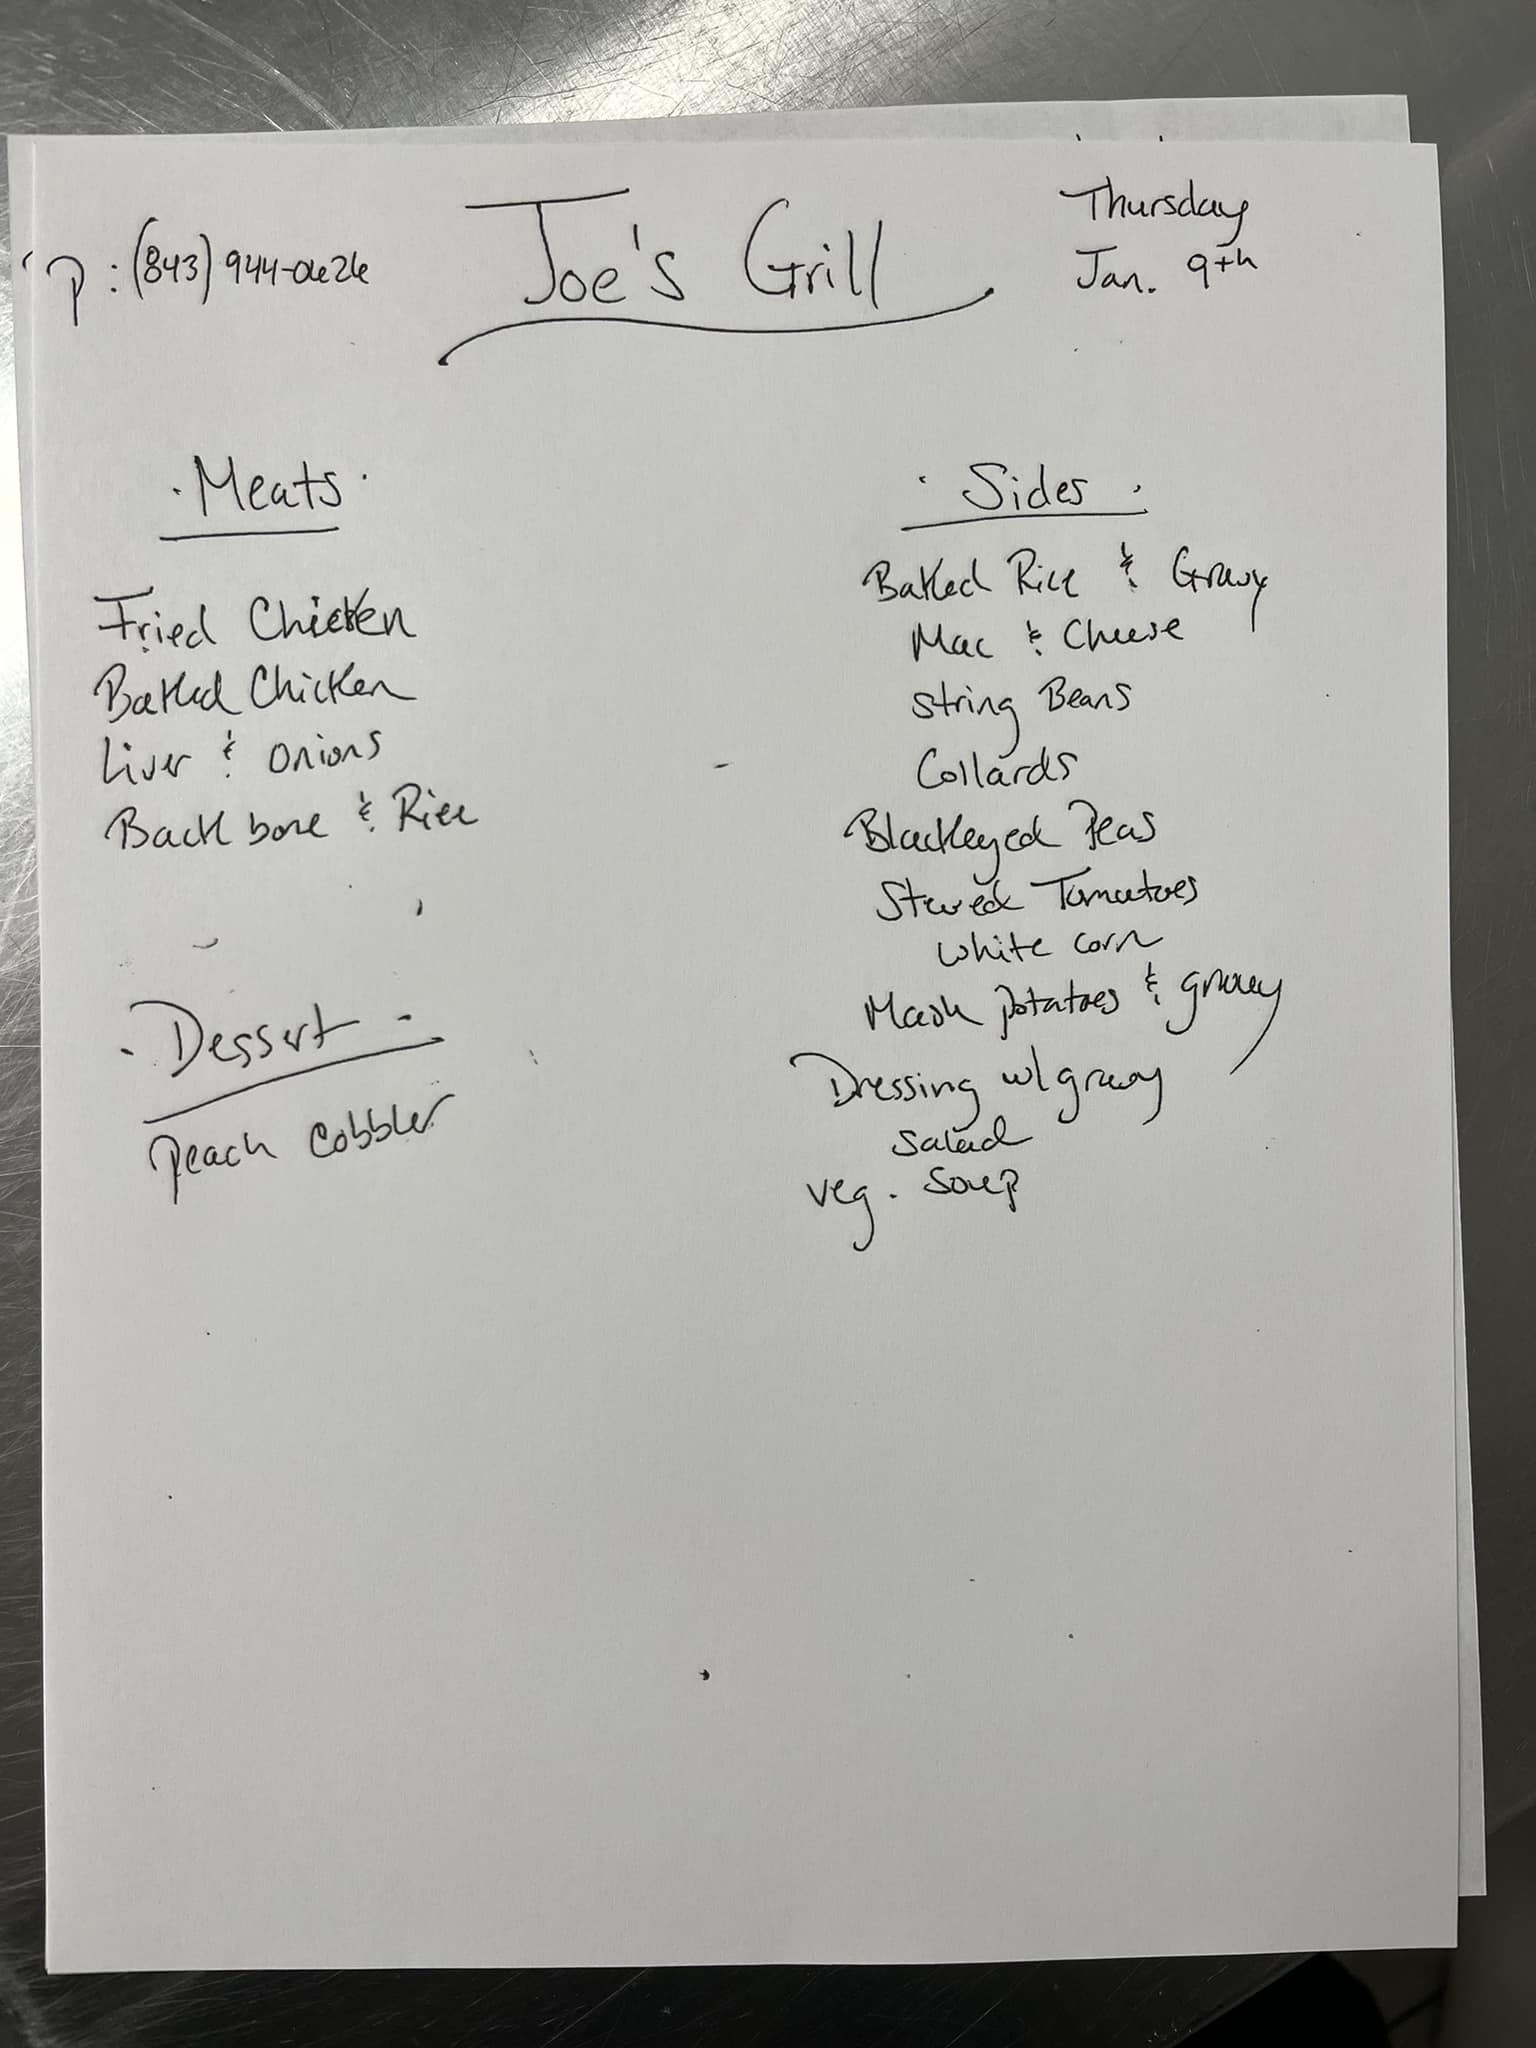 P: (843) 944-0626
Joe's Grill
Thursday
Jan. 9th
· Meats ·
Fried Chicken
Baked Chicken
Liver & onions
Backbone & Rice
· Dessert ·
Peach Cobbler
· Sides ·
Baked Rice & Gravy
Mac & Cheese
String Beans
Collards
Blackeyed Peas
Stewed Tomatoes
White corn
Mash potatoes & gravy
Dressing w/ gravy
Salad
Veg. Soup